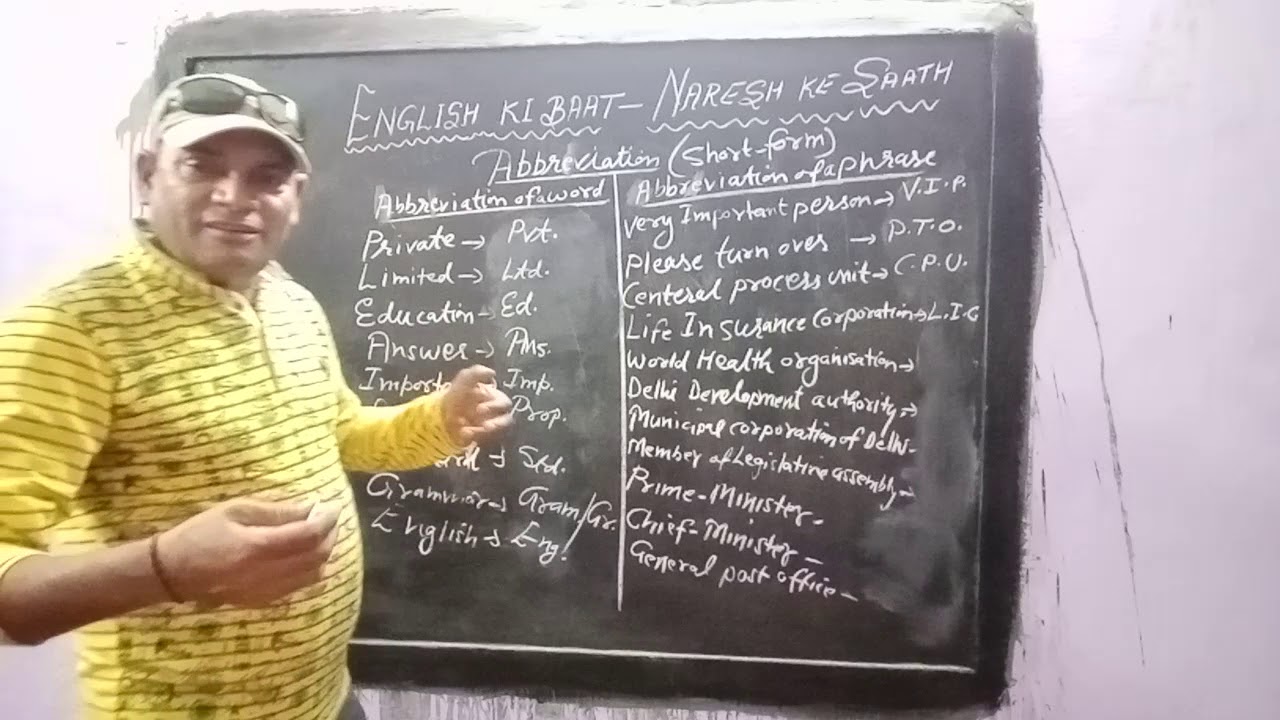 ENGLISH KI BAAT - NARESH KE SAATH
Abbreviation (Short-form)
Abbreviation of a word
Private → Pvt.
Limited → Ltd.
Education → Ed.
Answer → Ans.
→ Imp.
Prop.
→ Std.
Grammar → Gram/Gr.
English → Eng.
Abbreviation of a phrase
Very Important person → V.I.P.
Please turn over → P.T.O.
Centeral process unit → C.P.U.
Life Insurance Corporation → L.I.C
World Health organisation →
Delhi Development authority →
Municipal corporation of Delhi -
Member of Legislative assembly →
Prime-Minister -
Chief-Minister -
General post office -